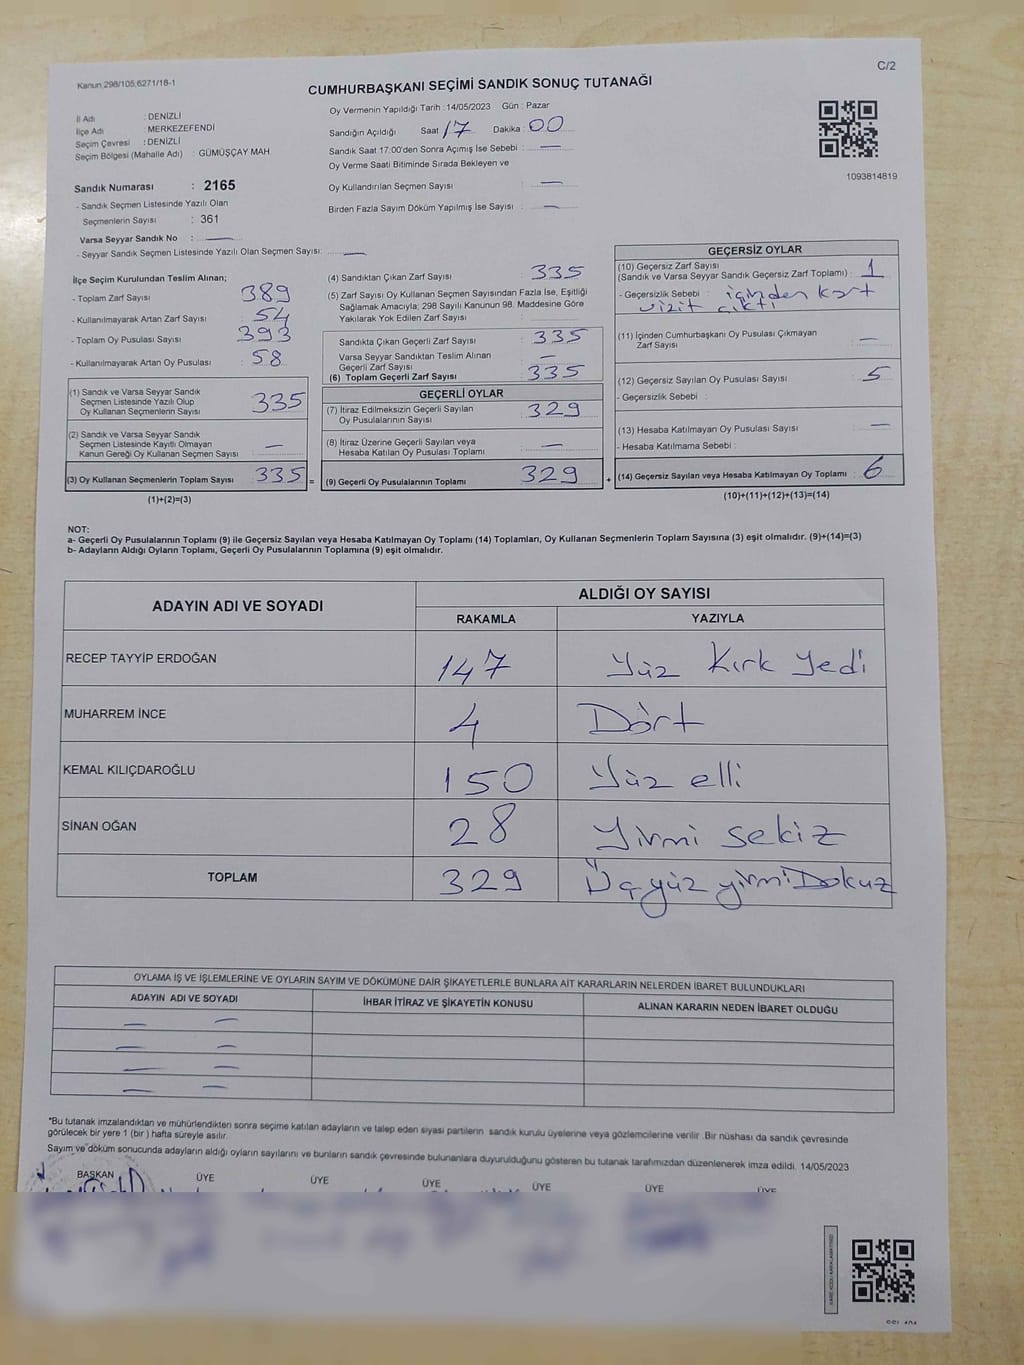 Kanun:298/105;6271/18-1
C/2
CUMHURBAŞKANI SEÇİMİ SANDIK SONUÇ TUTANAĞI
İl Adı : DENİZLİ
İlçe Adı : MERKEZEFENDİ
Seçim Çevresi : DENİZLİ
Seçim Bölgesi (Mahalle Adı) : GÜMÜŞÇAY MAH.
Oy Vermenin Yapıldığı Tarih : 14/05/2023 Gün : Pazar
Sandığın Açıldığı Saat 17 Dakika : 00
Sandık Saat 17:00'den Sonra Açımış İse Sebebi : —
Oy Verme Saati Bitiminde Sırada Bekleyen ve
Oy Kullandırılan Seçmen Sayısı : —
Birden Fazla Sayım Döküm Yapılmış İse Sayısı : —
1093814819
Sandık Numarası : 2165
- Sandık Seçmen Listesinde Yazılı Olan
Seçmenlerin Sayısı : 361
Varsa Seyyar Sandık No : —
- Seyyar Sandık Seçmen Listesinde Yazılı Olan Seçmen Sayısı: —
İlçe Seçim Kurulundan Teslim Alınan;
- Toplam Zarf Sayısı 389
- Kullanılmayarak Artan Zarf Sayısı 54
- Toplam Oy Pusulası Sayısı 393
- Kullanılmayarak Artan Oy Pusulası 58
(1) Sandık ve Varsa Seyyar Sandık
Seçmen Listesinde Yazılı Olup
Oy Kullanan Seçmenlerin Sayısı 335
(2) Sandık ve Varsa Seyyar Sandık
Seçmen Listesinde Kayıtlı Olmayan
Kanun Gereği Oy Kullanan Seçmen Sayısı : —
(3) Oy Kullanan Seçmenlerin Toplam Sayısı 335 =
(1)+(2)=(3)
(4) Sandıktan Çıkan Zarf Sayısı : 335
(5) Zarf Sayısı Oy Kullanan Seçmen Sayısından Fazla İse, Eşitliği
Sağlamak Amacıyla; 298 Sayılı Kanunun 98. Maddesine Göre
Yakılarak Yok Edilen Zarf Sayısı :
Sandıkta Çıkan Geçerli Zarf Sayısı : 335
Varsa Seyyar Sandıktan Teslim Alınan
Geçerli Zarf Sayısı : —
(6) Toplam Geçerli Zarf Sayısı : 335
GEÇERLİ OYLAR
(7) İtiraz Edilmeksizin Geçerli Sayılan
Oy Pusulalarının Sayısı : 329
(8) İtiraz Üzerine Geçerli Sayılan veya
Hesaba Katılan Oy Pusulası Toplamı : —
(9) Geçerli Oy Pusulalarının Toplamı : 329 +
GEÇERSİZ OYLAR
(10) Geçersiz Zarf Sayısı
(Sandık ve Varsa Seyyar Sandık Geçersiz Zarf Toplamı) : 1
- Geçersizlik Sebebi : içinden kart
vizit çıktı
(11) İçinden Cumhurbaşkanı Oy Pusulası Çıkmayan
Zarf Sayısı : —
(12) Geçersiz Sayılan Oy Pusulası Sayısı : 5
- Geçersizlik Sebebi :
(13) Hesaba Katılmayan Oy Pusulası Sayısı : —
- Hesaba Katılmama Sebebi :
(14) Geçersiz Sayılan veya Hesaba Katılmayan Oy Toplamı : 6
(10)+(11)+(12)+(13)=(14)
NOT:
a- Geçerli Oy Pusulalarının Toplamı (9) ile Geçersiz Sayılan veya Hesaba Katılmayan Oy Toplamı (14) Toplamları, Oy Kullanan Seçmenlerin Toplam Sayısına (3) eşit olmalıdır. (9)+(14)=(3)
b- Adayların Aldığı Oyların Toplamı, Geçerli Oy Pusulalarının Toplamına (9) eşit olmalıdır.
ADAYIN ADI VE SOYADI ALDIĞI OY SAYISI
RAKAMLA YAZIYLA
RECEP TAYYİP ERDOĞAN 147 Yüz Kırk Yedi
MUHARREM İNCE 4 Dört
KEMAL KILIÇDAROĞLU 150 Yüz elli
SİNAN OĞAN 28 Yirmi sekiz
TOPLAM 329 Üçyüz yirmi Dokuz
OYLAMA İŞ VE İŞLEMLERİNE VE OYLARIN SAYIM VE DÖKÜMÜNE DAİR ŞİKAYETLERLE BUNLARA AİT KARARLARIN NELERDEN İBARET BULUNDUKLARI
ADAYIN ADI VE SOYADI İHBAR İTİRAZ VE ŞİKAYETİN KONUSU ALINAN KARARIN NEDEN İBARET OLDUĞU
— —
— —
— —
— —
*Bu tutanak imzalandıktan ve mühürlendikten sonra seçime katılan adayların ve talep eden siyasi partilerin sandık kurulu üyelerine veya gözlemcilerine verilir .Bir nüshası da sandık çevresinde
görülecek bir yere 1 (bir ) hafta süreyle asılır.
Sayım ve döküm sonucunda adayların aldığı oyların sayılarını ve bunların sandık çevresinde bulunanlara duyurulduğunu gösteren bu tutanak tarafımızdan düzenlenerek imza edildi. 14/05/2023
BAŞKAN ÜYE ÜYE ÜYE ÜYE ÜYE ÜYE